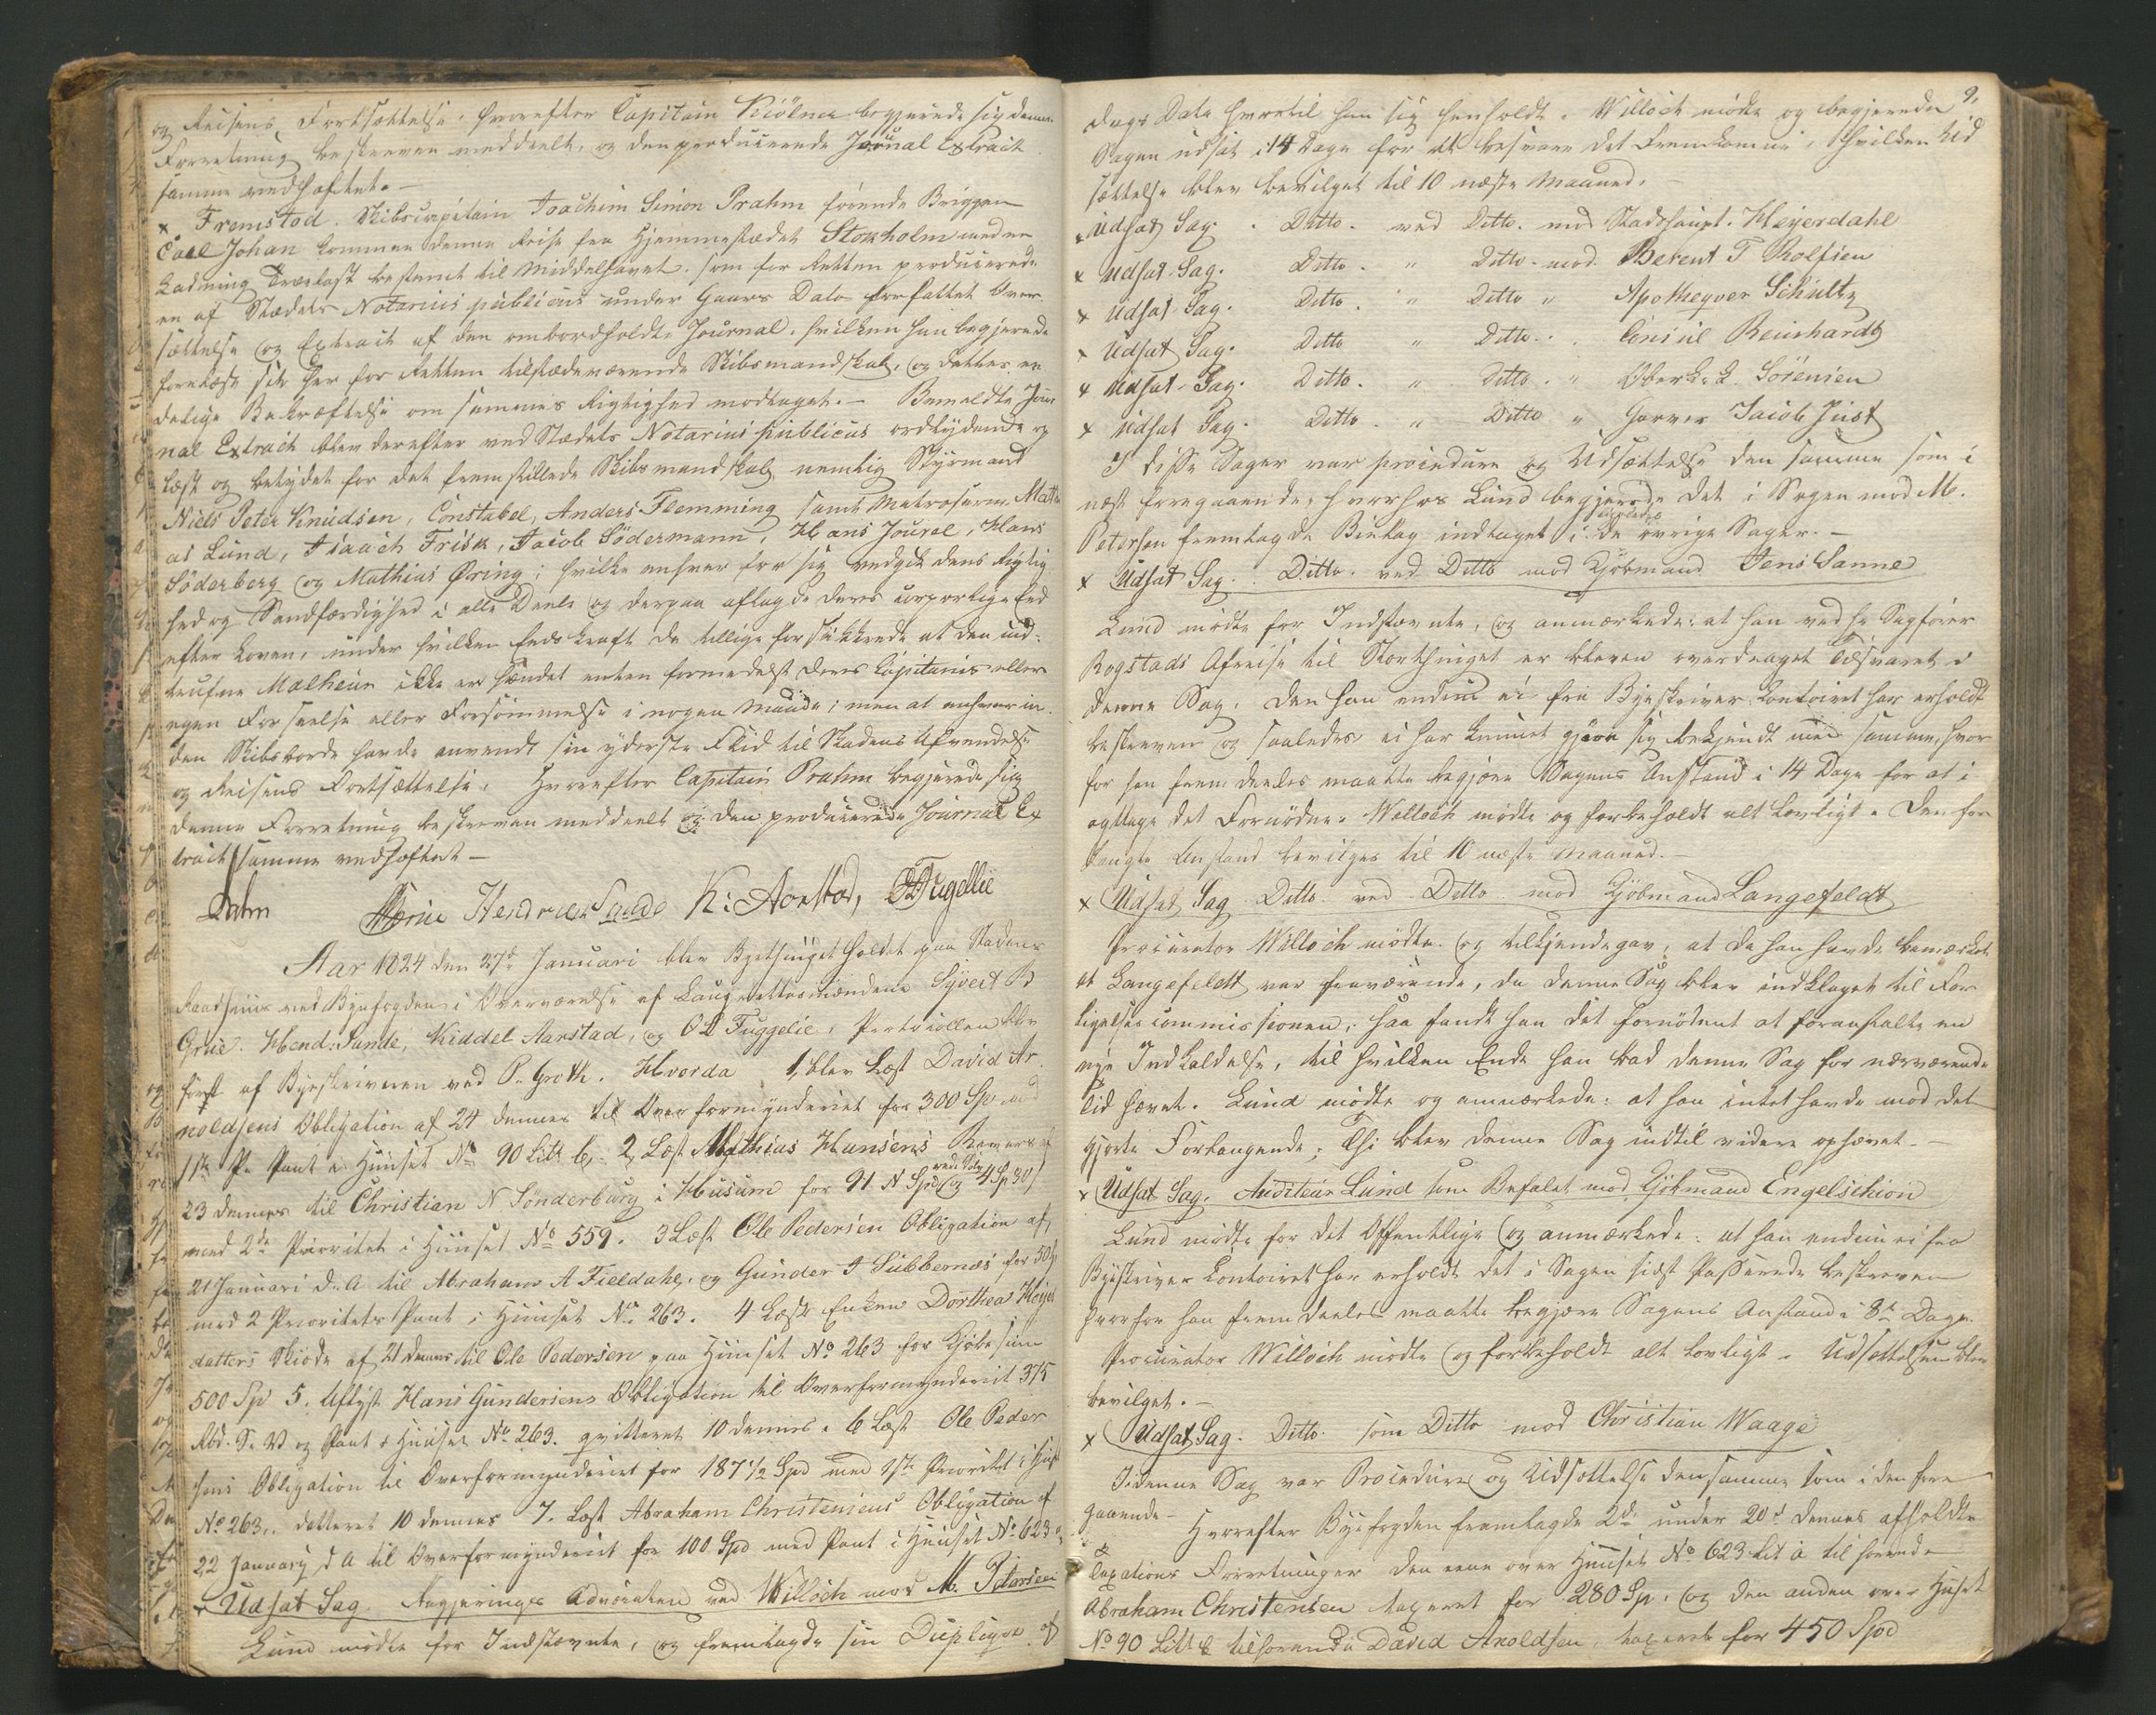 og Reisens Fortsættelse. Hvorefter Capitain Kiölner begjerede sig denne
Forretning beskreven meddeelt, og den producerede Journal Extract
samme vedhæftet. —
x Fremstod. Skibscapitain Joachim Simon Prahm förende Briggen
Carl Johan kommen denne Reise fra Hjemmestædet Stokholm med en
Ladning Trælast bestemt til Middelhavet. som for Retten producerede
en af Stædets Notarius publicus under Gaars Dato forfattet Over
sættelse og Extract af den ombordholdte Journal. hvilken han begjerede
forelæst for her for Retten tilstædeværende Skibsmandskab, og dettes ee
delige Bekræftelse om sammes Rigtighed modtaget. — Bemeldte Jour
nal Extract blev derefter ved Stædets Notarius publicus ordlydende op
læst og betydet for det fremstillede Skibsmandskab nemlig Styrmand
Niels Peter Knudsen, Constabel, Anders Flemming samt Matroserne Mathi
as Lund, Isaach Frisk, Jacob Södermann, Hans Jourel, Hans
Söderberg og Mathias Öring; hvilke enhver for sig vedgik dens Rigtig
hed og Sandfærdighed i alle Deele og derpaa aflagde deres corporlige Eed
efter Loven, under hvilken Eeds Kraft de tillige forsikkrede at den ind-
trufne Malheur ikke er hændet enten formedelst deres Capitains eller
egen Forseelse eller Forsömmelse i nogen Maade; men at enhver in
den Skibsborde havde anvendt sin yderste Flid til Skadens Afvendelse
og Reisens Fortsættelse. Hvorefter Capitain Prahm begjerede sig
denne Forretning beskreven meddeelt og den producerede Journal Ex
tract samme vedhæftet —
Hendrich Sande K: Aarstad, OTugellie
Aar 1824 den 27de Januari blev Byethinget holdet paa Stadens
Raadhuus ved Byefogden i Overværelse af Laugrettesmændene Syvert
Grue. Hend: Sande, Kiddel Aarstad, og O Tuggelie. Protocollen blev
först af Byeskriveren ved P. Groth. Hvorda 1, blev Læst David Ar
noldsens Obligation af 24 dennes til Overformynderiet for 300 Sp mod
1ste Pr Pant i Huuset No 90 Litt b. 2, Læst Mathias Hansens Bevis af
23 dennes til Christian N Sönderburg i Husum for 91 N Spd og 4 Sp 30
med 2de Prioritet i Huuset No 559. 3 Læst Ole Pedersen Obligation af
21 Januari d: A til Abraham A Fieldahl. og Gunder T Lubbernæs for 50
med 2 Prioritets Pant i Huuset No 263. 4 Læst Enken Dorthea
datters Skiöde af 21 dennes til Ole Pedersen paa Huuset No 263 for Kjöbesum
500 Sp 5. Aflyst Hans Gundersens Obligation til Overformynderiet 375
Rbd. S. V og Pant i Huuset No 263. qvitteret 10 dennes. 6 Læst Ole Peder
sens Obligation til Overformynderiet for 187 1/2 Spd med 1ste Prioritet i Huset
No 263, datteret 10 dennes 7. Læst Abraham Christensens Obligation af
22 January d A til Overformynderiet for 100 Spd med Pant i Huuset No 623 a
x Udsat Sag. Regjerings Advocaten ved Willoch mod M. Petersen
Lund mödte for Indstævnte, og fremlagde sin Duplique af
9.
Dags Dato hvortil han sig henholdt. Willoch mödte og begjerede
Sagen udsat i 14 Dage for at besvare det Fremkomne, hvilken Ud
sættelse blev bevilget til 10 næste Maaned. —
x Udsat Sag. Ditto. ved Ditto. mod Stadshaupt. Heyerdahl
x Udsat Sag. Ditto. " Ditto. mod Berent T Rolfsen
x Udsat Sag. Ditto. " Ditto " Apotheqver Schultz
x Udsat Sag. Ditto " Ditto. . Consul Reinhardt
x Udsat Sag. Ditto. " Ditto. " Oberk. K. Sörensen
x Udsat Sag. Ditto. " Ditto " Garver Jacob Just
I disse Sager var procedure og Udsættelse den samme som i
næst foregaaende, hvorhos Lund begjerede det i Sagen mod M.
Petersen fremlagde Bielag indtaget i de övrige Sager. —
x Udsat Sag. Ditto. ved Ditto mod Kjöbmand Jens Sanne
Lund mödte for Indstævnte, og anmærkede: at han ved Hr Sagförer
Rogstads Afreise til Storthinget er bleven overdraget Tilsvaret i
denne Sag. Den han endnu ei fra Byeskriver Contoiret har erholdt
beskreven og saaledes ei har kunnet gjöre sig bekjendt med samme, hvor
for han fremdeeles maatte begjere Sagens Anstand i 14 Dage for at i
agttage det Fornödne. Willoch mödte og forbeholdt alt Lovligt. Den for
langte Anstand bevilges til 10 næste Maaned. —
x Udsat Sag Ditto. ved Ditto. mod Kjöbmand Langefeldt
Procurator Willoch mödte og tilkjendegav, at da han havde bemærket
at Langefeldt var fraværende, da denne Sag blev indklaget til For
ligelses commissionen; saa fandt han det fornödent at foranstalte en
nye Indkaldelse, til hvilken Ende han bad denne Sag for nærværende
Tid hævet. Lund mödte og anmærkede: at han intet havde mod det
gjorte Forlangende; Thi blev denne Sag indtil videre ophævet. —
x Udsat Sag. Auditeur Lund som Befalet mod Kjöbmand Engelschiön
Lund mödte for det Offentlige og anmærkede: at han endnu ei fra
Byeskriver Contoiret har erholdt det i Sagen sidst Passerede beskreven
hvorfor han fremdeeles maatte begjere Sagens Anstand i 8te Dage.
Procurator Willoch mödte og forbeholdt alt Lovligt. Udsættelsen blev
bevilget. —
x Udsat Sag. Ditto. som Ditto mod Christian Waage
I denne Sag var Procedure og Udsættelse den samme som i den fore
gaaende — Hvorefter Byefogden fremlagde 2de under 20de dennes afholdte
Taxations Forretninger den eene over Huuset No 623 Lit a tilhörende
Abraham Christensen taxeret for 280 Sp. og den anden over Huset
No 90 Litt b tilhörende David Arnoldsen taxeret for 450 Spd